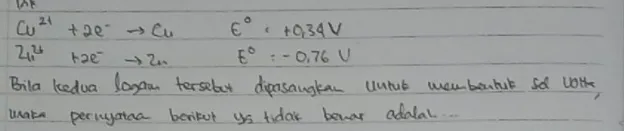 Cu²⁺ + 2e⁻ → Cu E° : +0,34 V
Zn²⁺ +2e⁻ → Zn E° : -0,76 V
Bila kedua logam tersebut dipasangkan untuk membentuk sel volta,
maka pernyataan berikut yg tidak benar adalah...